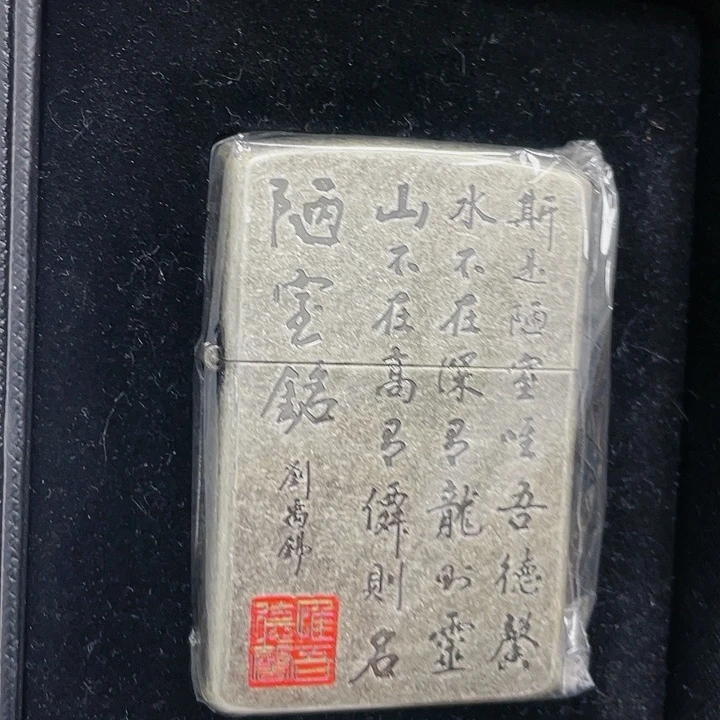 陋室銘
劉禹錫
山不在高有僊則名
水不在深有龍則靈
斯是陋室唯吾德馨
唯吾
德馨